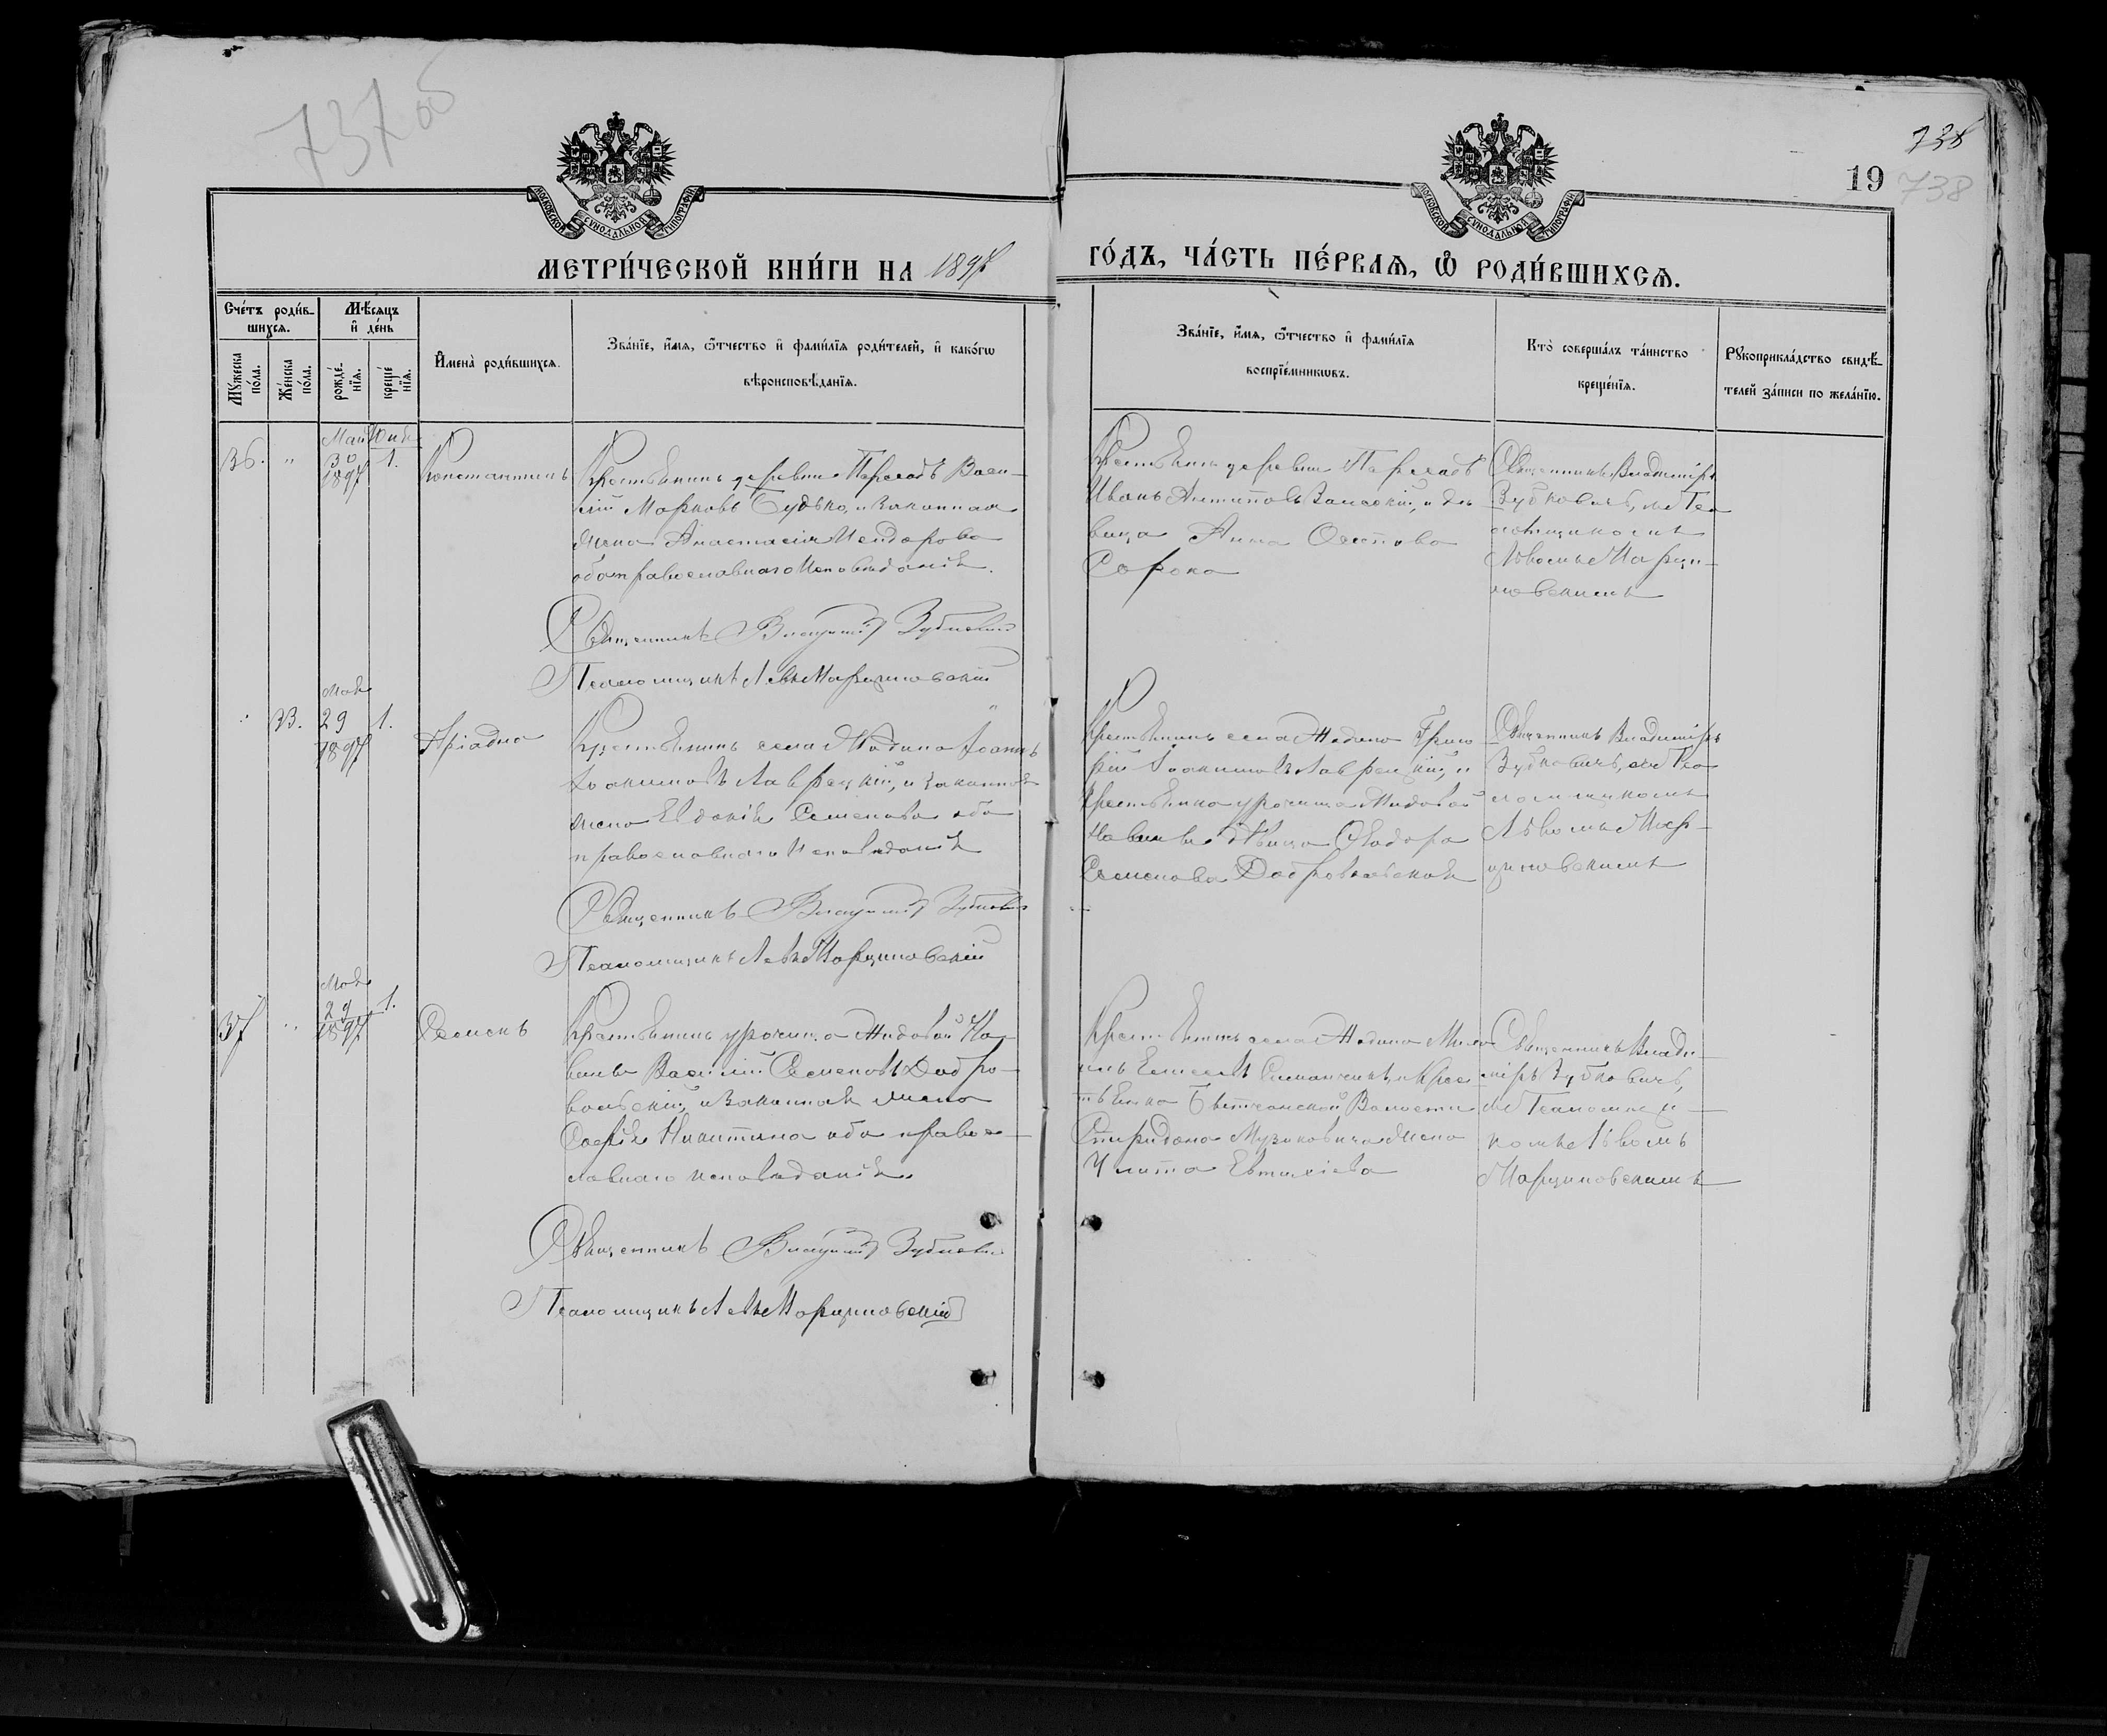 737об
738
19 738
МОСКОВСКОЙ СѴНОДАЛЬНОЙ ТИПОГРАФІИ
МОСКОВСКОЙ СѴНОДАЛЬНОЙ ТИПОГРАФІИ
МЕТРИ́ЧЕСКОЙ КНИ́ГИ НА 1897
ГО́ДЪ, ЧА́СТЬ ПЕ́РВАѦ, Ѿ РОДИ́ВШИХСѦ.
Сче́тъ роди́в-
шихсѧ.
Мѣ́сѧцъ
и҆ де́нь
Мꙋ́жеска
по́ла.
Же́нска
по́ла.
рожде́-
нїѧ.
креще́
нїѧ.
И҆мена̀ роди́вшихсѧ.
Зва́нїе, и҆́мѧ, ѻ҆́тчество и҆ фами́лїѧ роди́телей, и҆ како́гѡ
вѣроисповѣ́данїѧ.
Зва́нїе, и҆́мѧ, ѻ҆́тчество и҆ фами́лїѧ
воспрїе́мникѡвъ.
Кто̀ соверша́лъ та́инство
креще́нїѧ.
Рꙋкоприкла́дство свидѣ́-
телей за́писи по жела́нїю.
36. " Май 30 1897 Іюнь 1. Константинъ
Крестьянинъ деревни Пареладъ Васи-
лій Марковъ Будько, и законная
жена Анастасія Исидорова
оба православнаго исповѣданія.
Священникъ Владиміръ Зубковичъ
Псаломщикъ Левъ Марциновскій
Крестьянинъ деревни
Иванъ Антиповъ и дѣ-
вица Анна Осипова
Сорока
Священникъ Владиміръ
Зубковичъ, съ Пса
ломщикомъ
Львомъ Марци-
новскимъ
" 33. Мая 29 1897 1. Аріадна
Крестьянинъ села Жадина Іоаннъ
Іоакимовъ Лаврецкій, и законная
жена Евдокія Семенова оба
православнаго исповѣданія
Священникъ Владиміръ Зубковичъ
Псаломщикъ Левъ Марциновскій
Крестьянинъ села Жадина Григо
рій Іоакимовъ Лаврецкій, и
крестьянка урочища
дѣвица Ѳеодора
Семенова Добровольская
Священникъ Владиміръ
Зубковичъ, съ Пса
ломщикомъ
Львомъ Мар-
циновскимъ
37 " Мая 29 1897 1. Семенъ
Крестьянинъ урочища
Василій Семеновъ Добро-
вольскій, и законная жена
Софія Никитина оба правос-
лавнаго исповѣданія.
Священникъ Владиміръ Зубковичъ
Псаломщикъ Левъ Марциновскій
Крестьянинъ села Жадина
и крес-
тьянка Волости
Спиридона Музыковича жена
Евтихіева
Священникъ Влади-
міръ Зубковичъ,
съ Псаломщи-
комъ Львомъ
Марциновскимъ